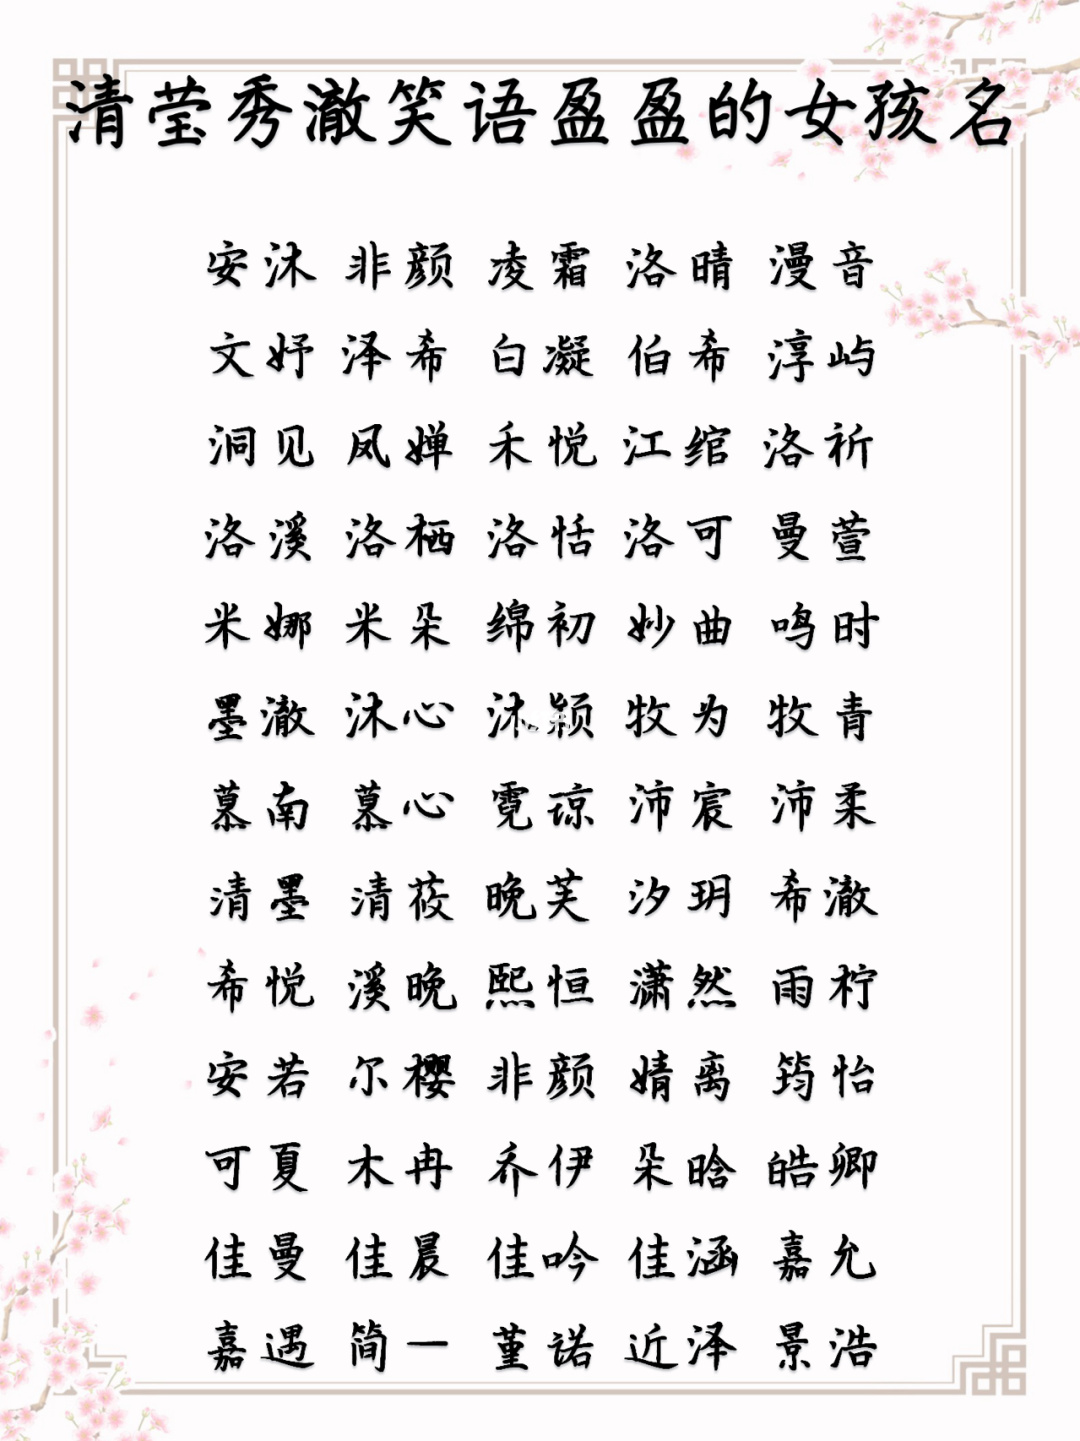 清莹秀澈笑语盈盈的女孩名
安沐 非颜 凌霜 洛晴 漫音
文妤 泽希 白凝 伯希 淳屿
洞见 凤婵 禾悦 江绾 洛祈
洛溪 洛栖 洛恬 洛可 曼萱
米娜 米朵 绵初 妙曲 鸣时
墨澈 沐心 沐颖 牧为 牧青
慕南 慕心 霓琼 沛宸 沛柔
清墨 清莜 晚芙 汐玥 希澈
希悦 溪晚 熙恒 潇然 雨柠
安若 尔樱 非颜 婧离 筠怡
可夏 木冉 乔伊 朵晗 皓卿
佳曼 佳晨 佳吟 佳涵 嘉允
嘉遇 简一 堇诺 近泽 景浩